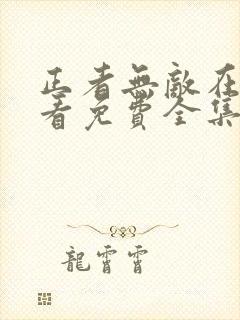 正者無敵在
看免費全集
龍霄霄